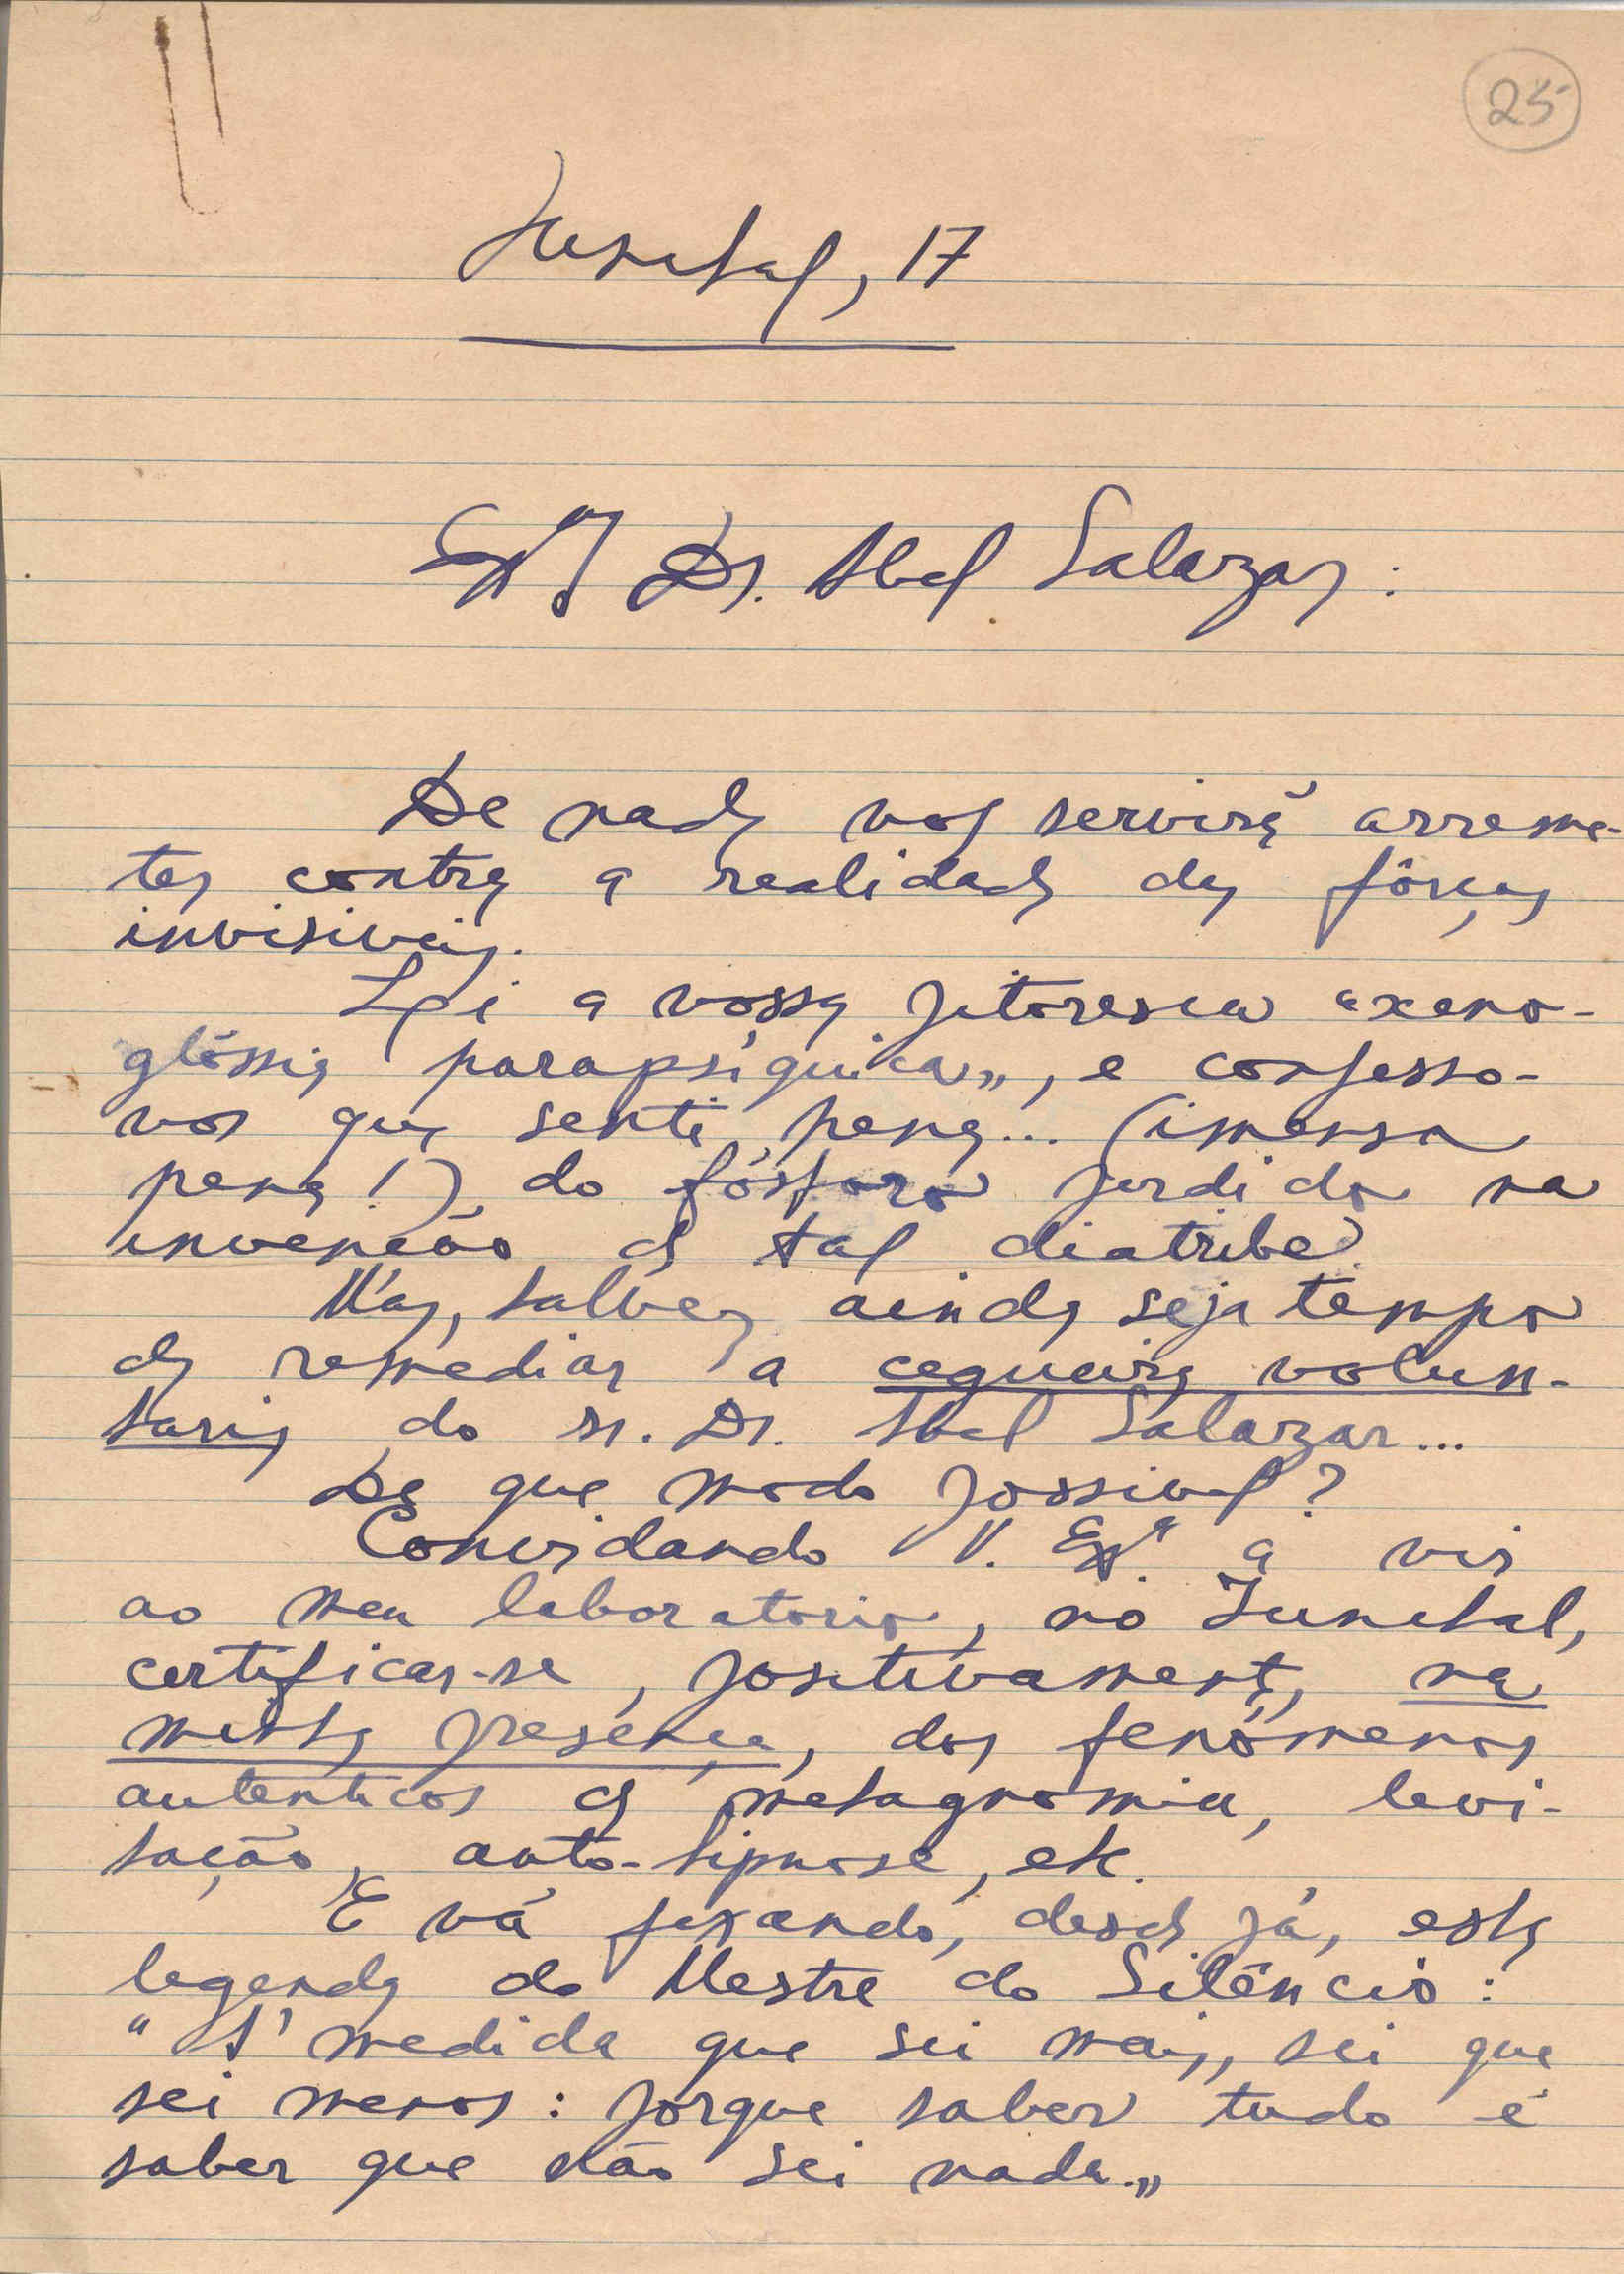 25
Funchal, 17
Ex.mo Dr. Abel Salazar:
De nada vos servirá arreme-
ter contra a realidade das fôrças
invisiveis.
Li a vossa pitoresca "xeno-
glóssia parapsíquica„, e confesso-
vos que senti pena... (imensa
pena!) do fósforo perdido na
invenção de tal diatribe.
Mas, talvez ainda seja tempo
de remediar a cegueira volun-
taria do sr. Dr. Abel Salazar...
De que modo possivel?
Convidando V. Ex.a a vir
ao meu laboratorio, no Funchal,
certificar-se, positivamente, na
minha presença, dos fenómenos
autenticos de metagnomia, levi-
tação, auto-hipnose, etc.
E vá fixando, desde já, esta
legenda do Mestre do Silêncio:
"A' medida que sei mais, sei que
sei menos: porque saber tudo é
saber que não sei nada.„